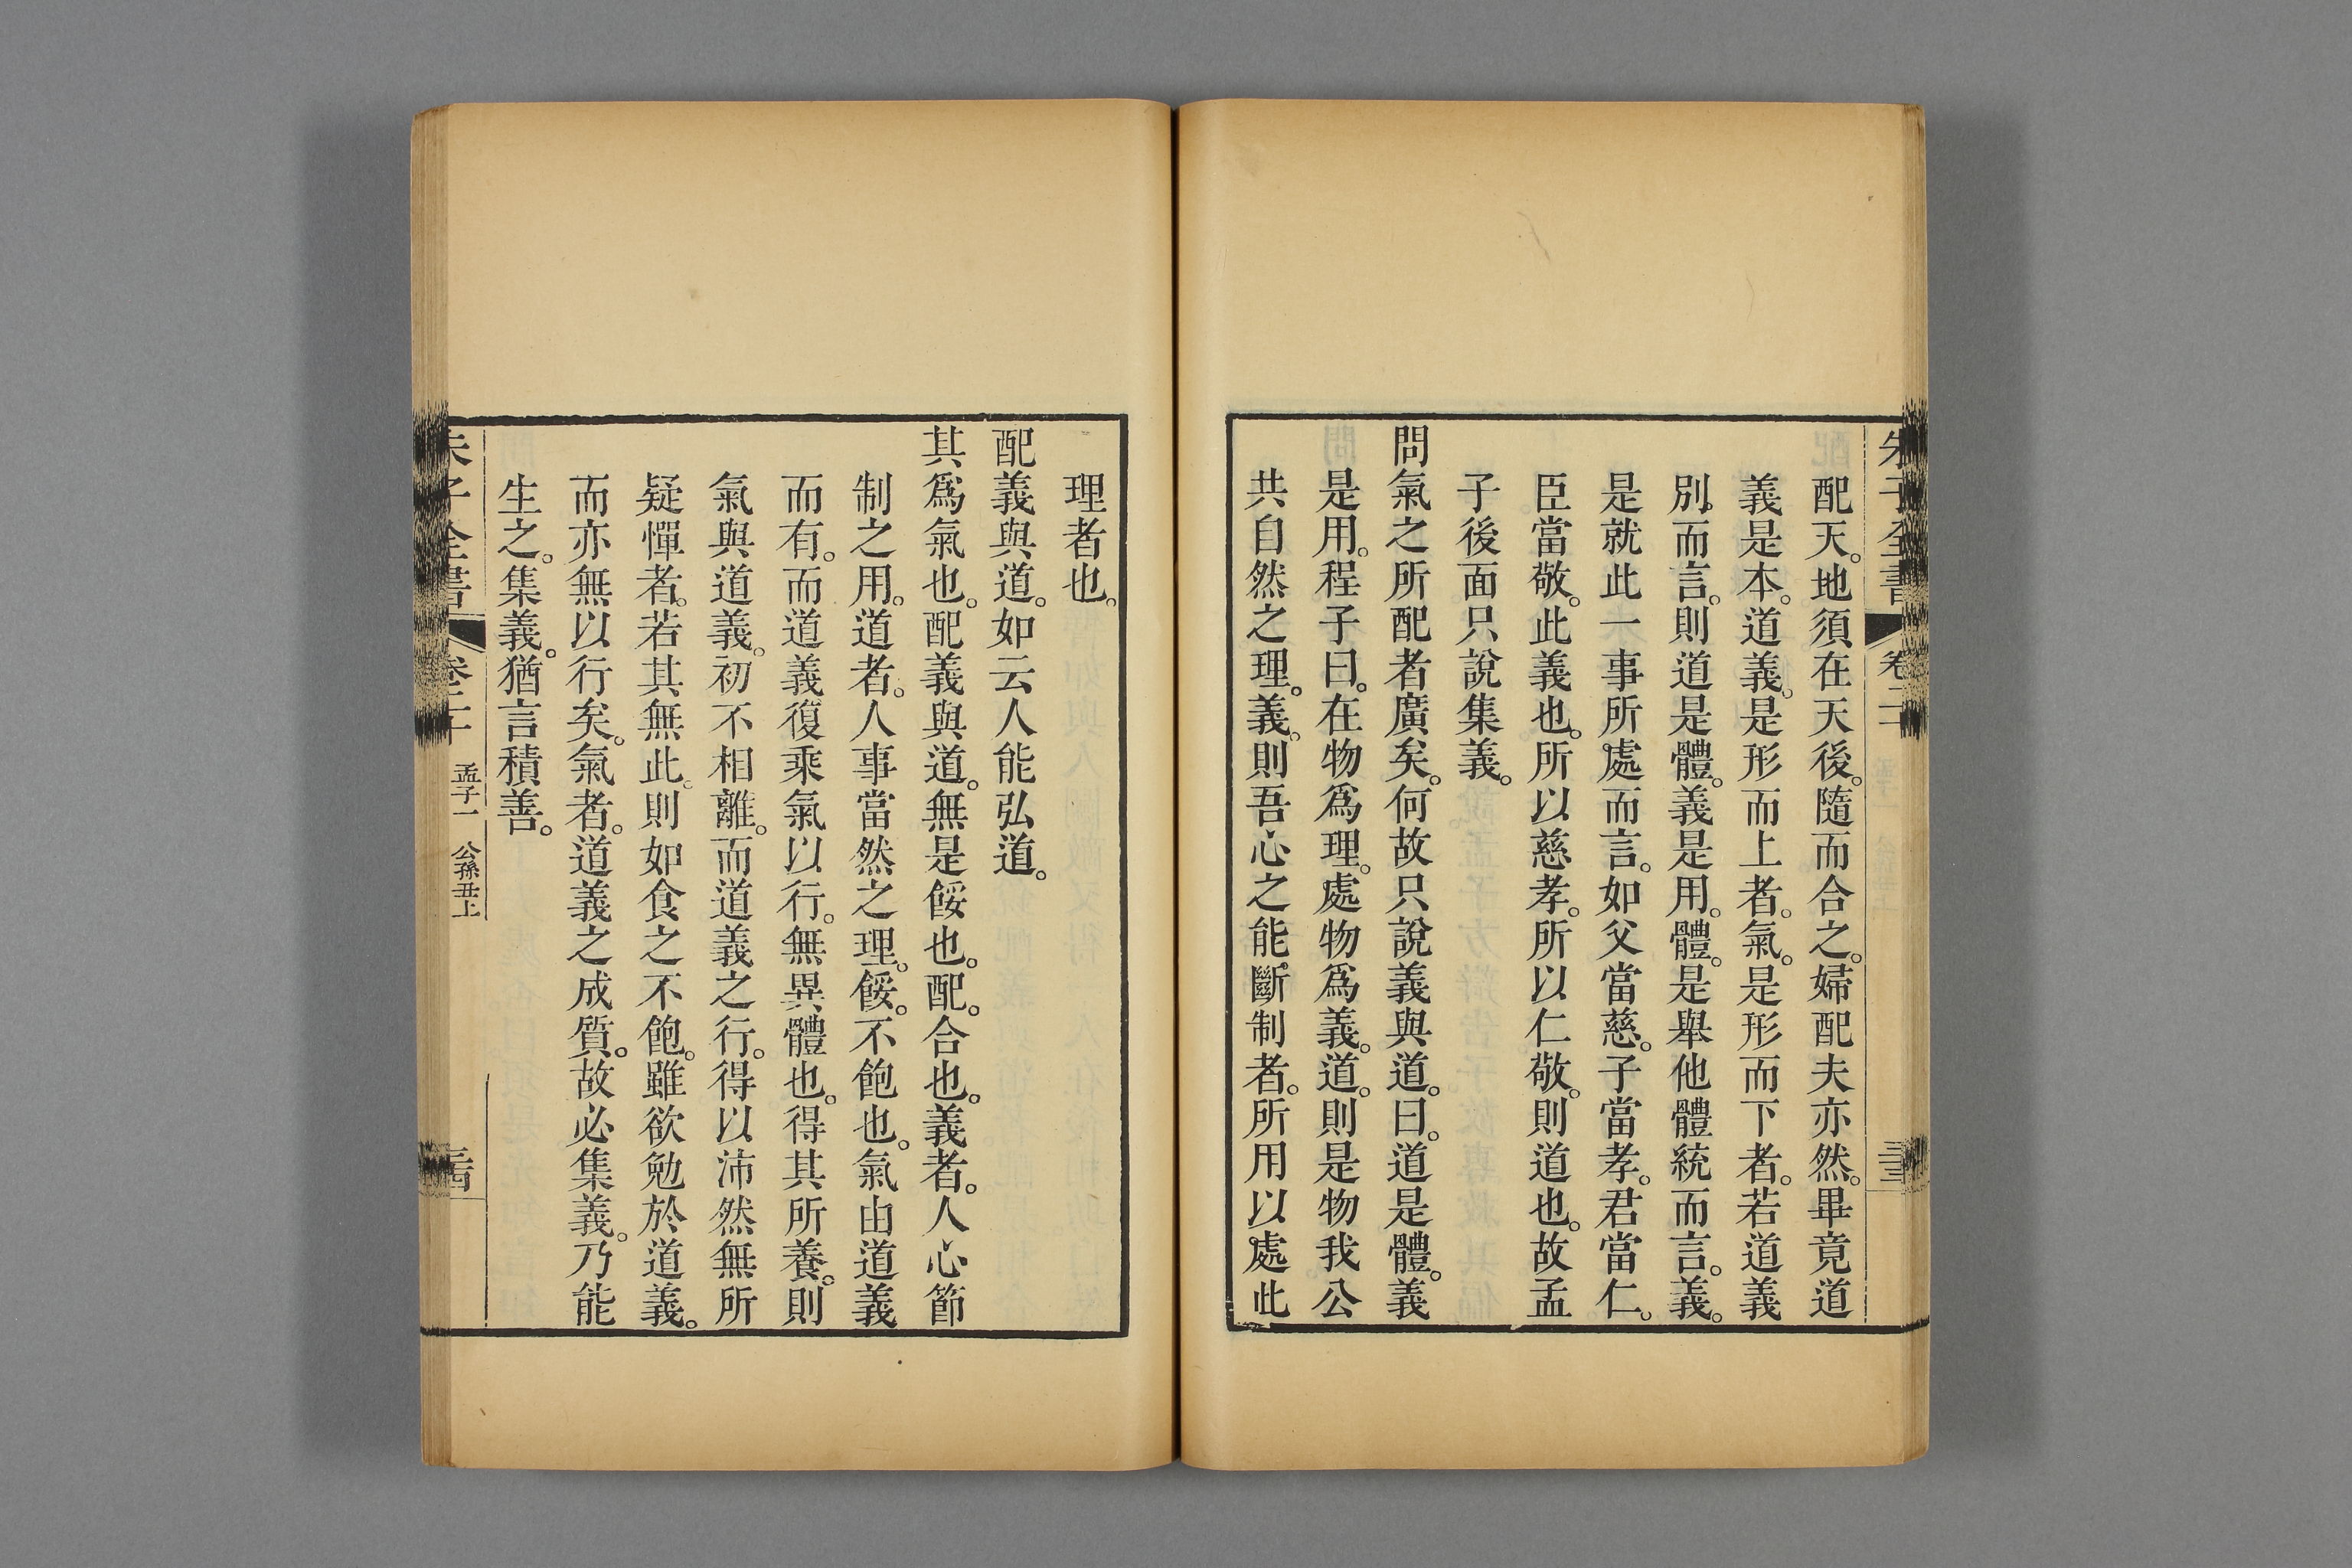 朱子全書 卷二十
配天。地須在天後。隨而合之。婦配夫亦然。畢竟道
義是本。道義。是形而上者。氣。是形而下者。若道義
別而言。則道是體。義是用。體。是舉他體統而言。義。
是就此一事所處而言。如父當慈。子當孝。君當仁。
臣當敬。此義也。所以慈孝。所以仁敬。則道也。故孟
子後面只說集義。
問氣之所配者廣矣。何故只說義與道。曰。道是體。義
是用。程子曰。在物爲理。處物爲義。道。則是物我公
共自然之理。義。則吾心之能斷制者。所用以處此
理者也。
配義與道。如云人能弘道。
其爲氣也。配義與道。無是餒也。配。合也。義者。人心節
制之用。道者。人事當然之理。餒。不飽也。氣由道義
而有。而道義復乘氣以行。無異體也。得其所養。則
氣與道義。初不相離。而道義之行。得以沛然無所
疑憚者。若其無此。則如食之不飽。雖欲勉於道義。
而亦無以行矣。氣者。道義之成質。故必集義。乃能
生之。集義。猶言積善。
朱子全書 卷二十 孟子一 公孫丑上